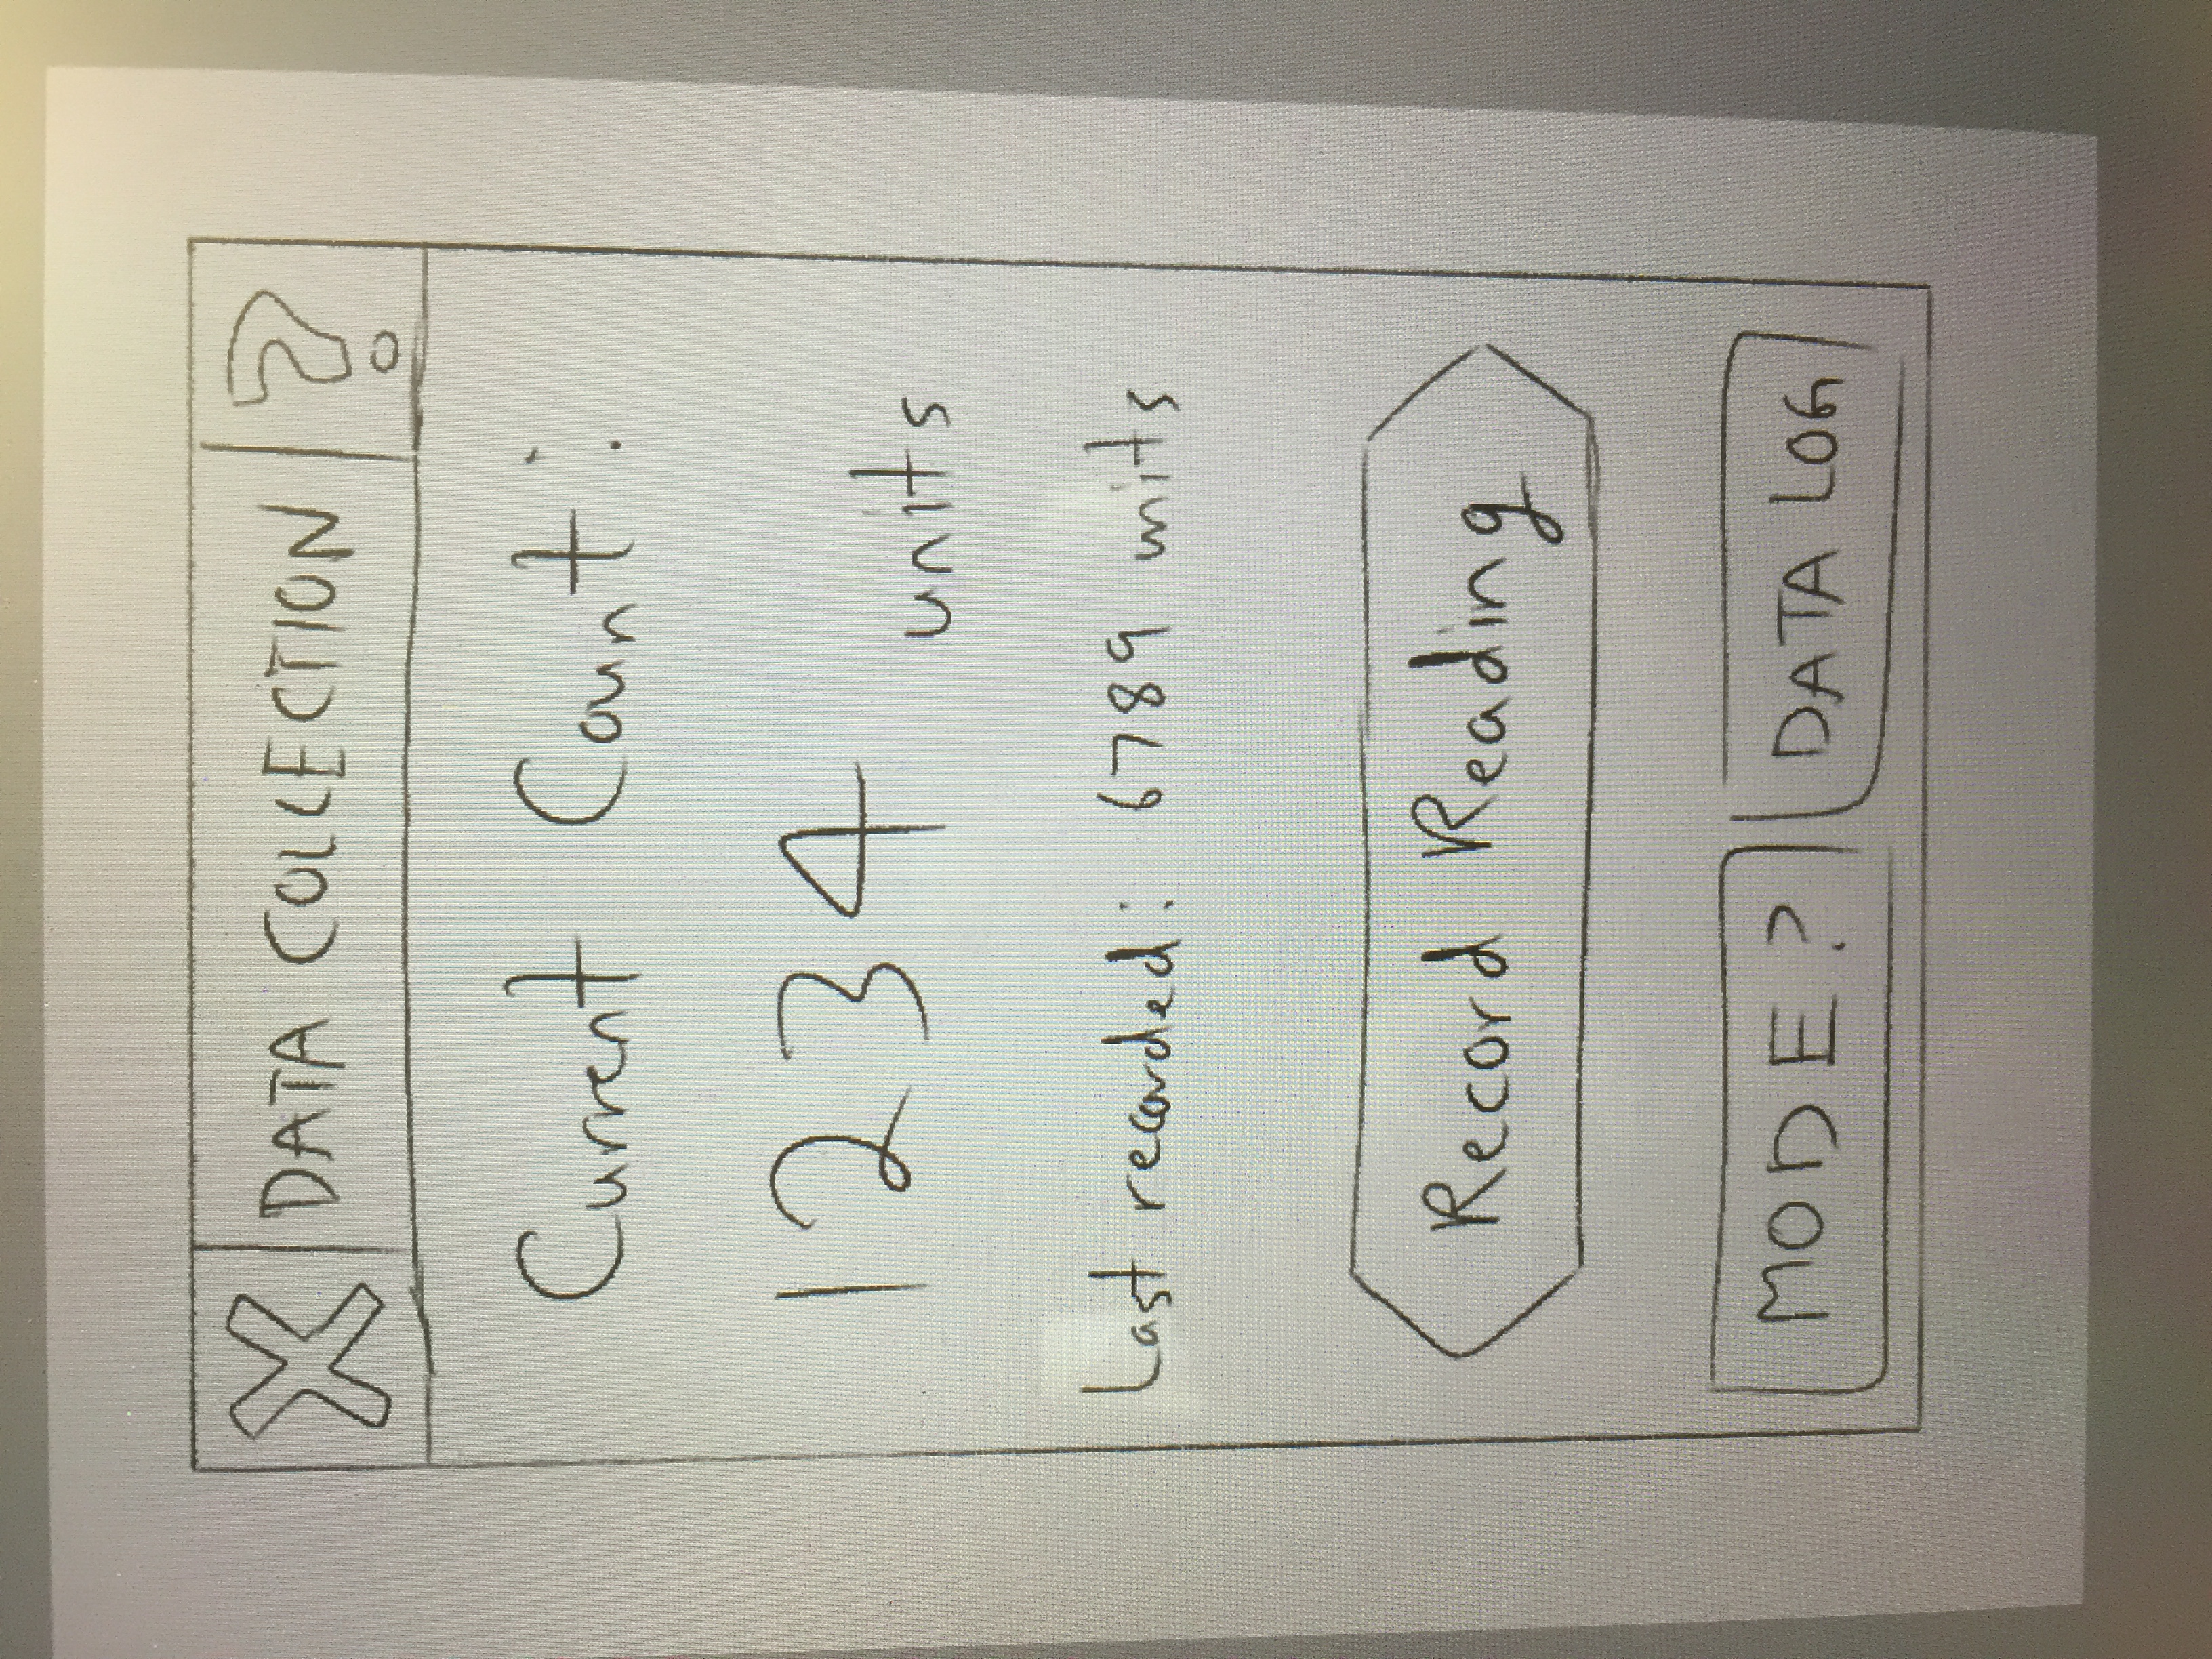 X DATA COLLECTION ?
Current Count:
1234 units
Last recorded: 6789 units
Record Reading
MODE?
DATA LOG